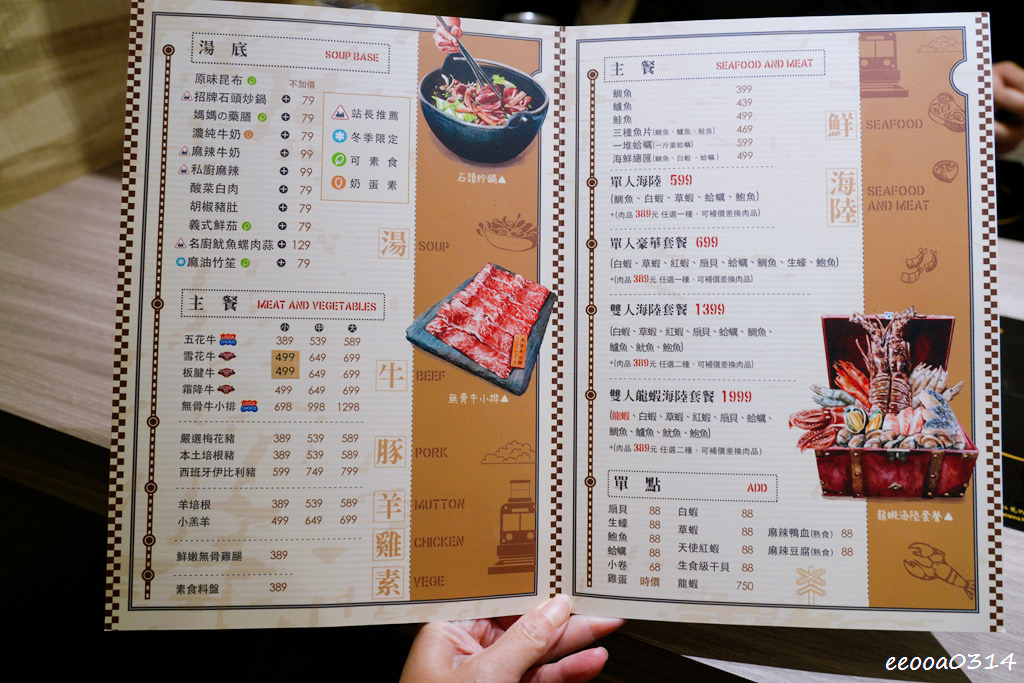 湯 底 SOUP BASE
原味昆布 不加價
招牌石頭炒鍋 79
媽媽の藥膳 79
濃純牛奶 79
麻辣牛奶 99
私廚麻辣 99
酸菜白肉 79
胡椒豬肚 79
義式鮮茄 79
名廚魷魚螺肉蒜 129
麻油竹笙 79
站長推薦
冬季限定
可素食
奶蛋素
石頭炒鍋▲
湯 SOUP
主 餐 MEAT AND VEGETABLES
小 中 大
五花牛 389 539 589
雪花牛 499 649 699
板腱牛 499 649 699
霜降牛 499 649 699
無骨牛小排 698 998 1298
牛 BEEF
無骨牛小排▲
嚴選梅花豬 389 539 589
本土培根豬 389 539 589
西班牙伊比利豬 599 749 799
豚 PORK
羊培根 389 539 589
小羔羊 499 649 699
羊 MUTTON
鮮嫩無骨雞腿 389
雞 CHICKEN
素食料盤 389
素 VEGE
主 餐 SEAFOOD AND MEAT
鯛魚 399
鱸魚 439
鮭魚 499
三種魚片(鯛魚、鱸魚、鮭魚) 469
一堆蛤蠣(一斤重蛤蠣) 599
海鮮總匯(鯛魚、白蝦、蛤蠣) 499
鮮 SEAFOOD
單人海陸 599
(鯛魚、白蝦、草蝦、蛤蠣、鮑魚)
+(肉品389元 任選一種，可補價差換肉品)
海陸 SEAFOOD AND MEAT
單人豪華套餐 699
(白蝦、草蝦、紅蝦、扇貝、蛤蠣、鯛魚、生蠔、鮑魚)
+(肉品389元 任選一種，可補價差換肉品)
雙人海陸套餐 1399
(白蝦、草蝦、紅蝦、扇貝、蛤蠣、鯛魚、
鱸魚、魷魚、鮑魚)
+(肉品389元 任選二種，可補價差換肉品)
雙人龍蝦海陸套餐 1999
(龍蝦、白蝦、草蝦、紅蝦、扇貝、蛤蠣、
鯛魚、鱸魚、魷魚、鮑魚)
+(肉品389元 任選二種，可補價差換肉品)
龍蝦海陸套餐▲
單 點 ADD
扇貝 88 白蝦 88
生蠔 88 草蝦 88 麻辣鴨血(熟食) 88
鮑魚 88 天使紅蝦 88 麻辣豆腐(熟食) 88
蛤蠣 88 生食級干貝 88
小卷 68 龍蝦 750
雞蛋 時價
eeooa0314